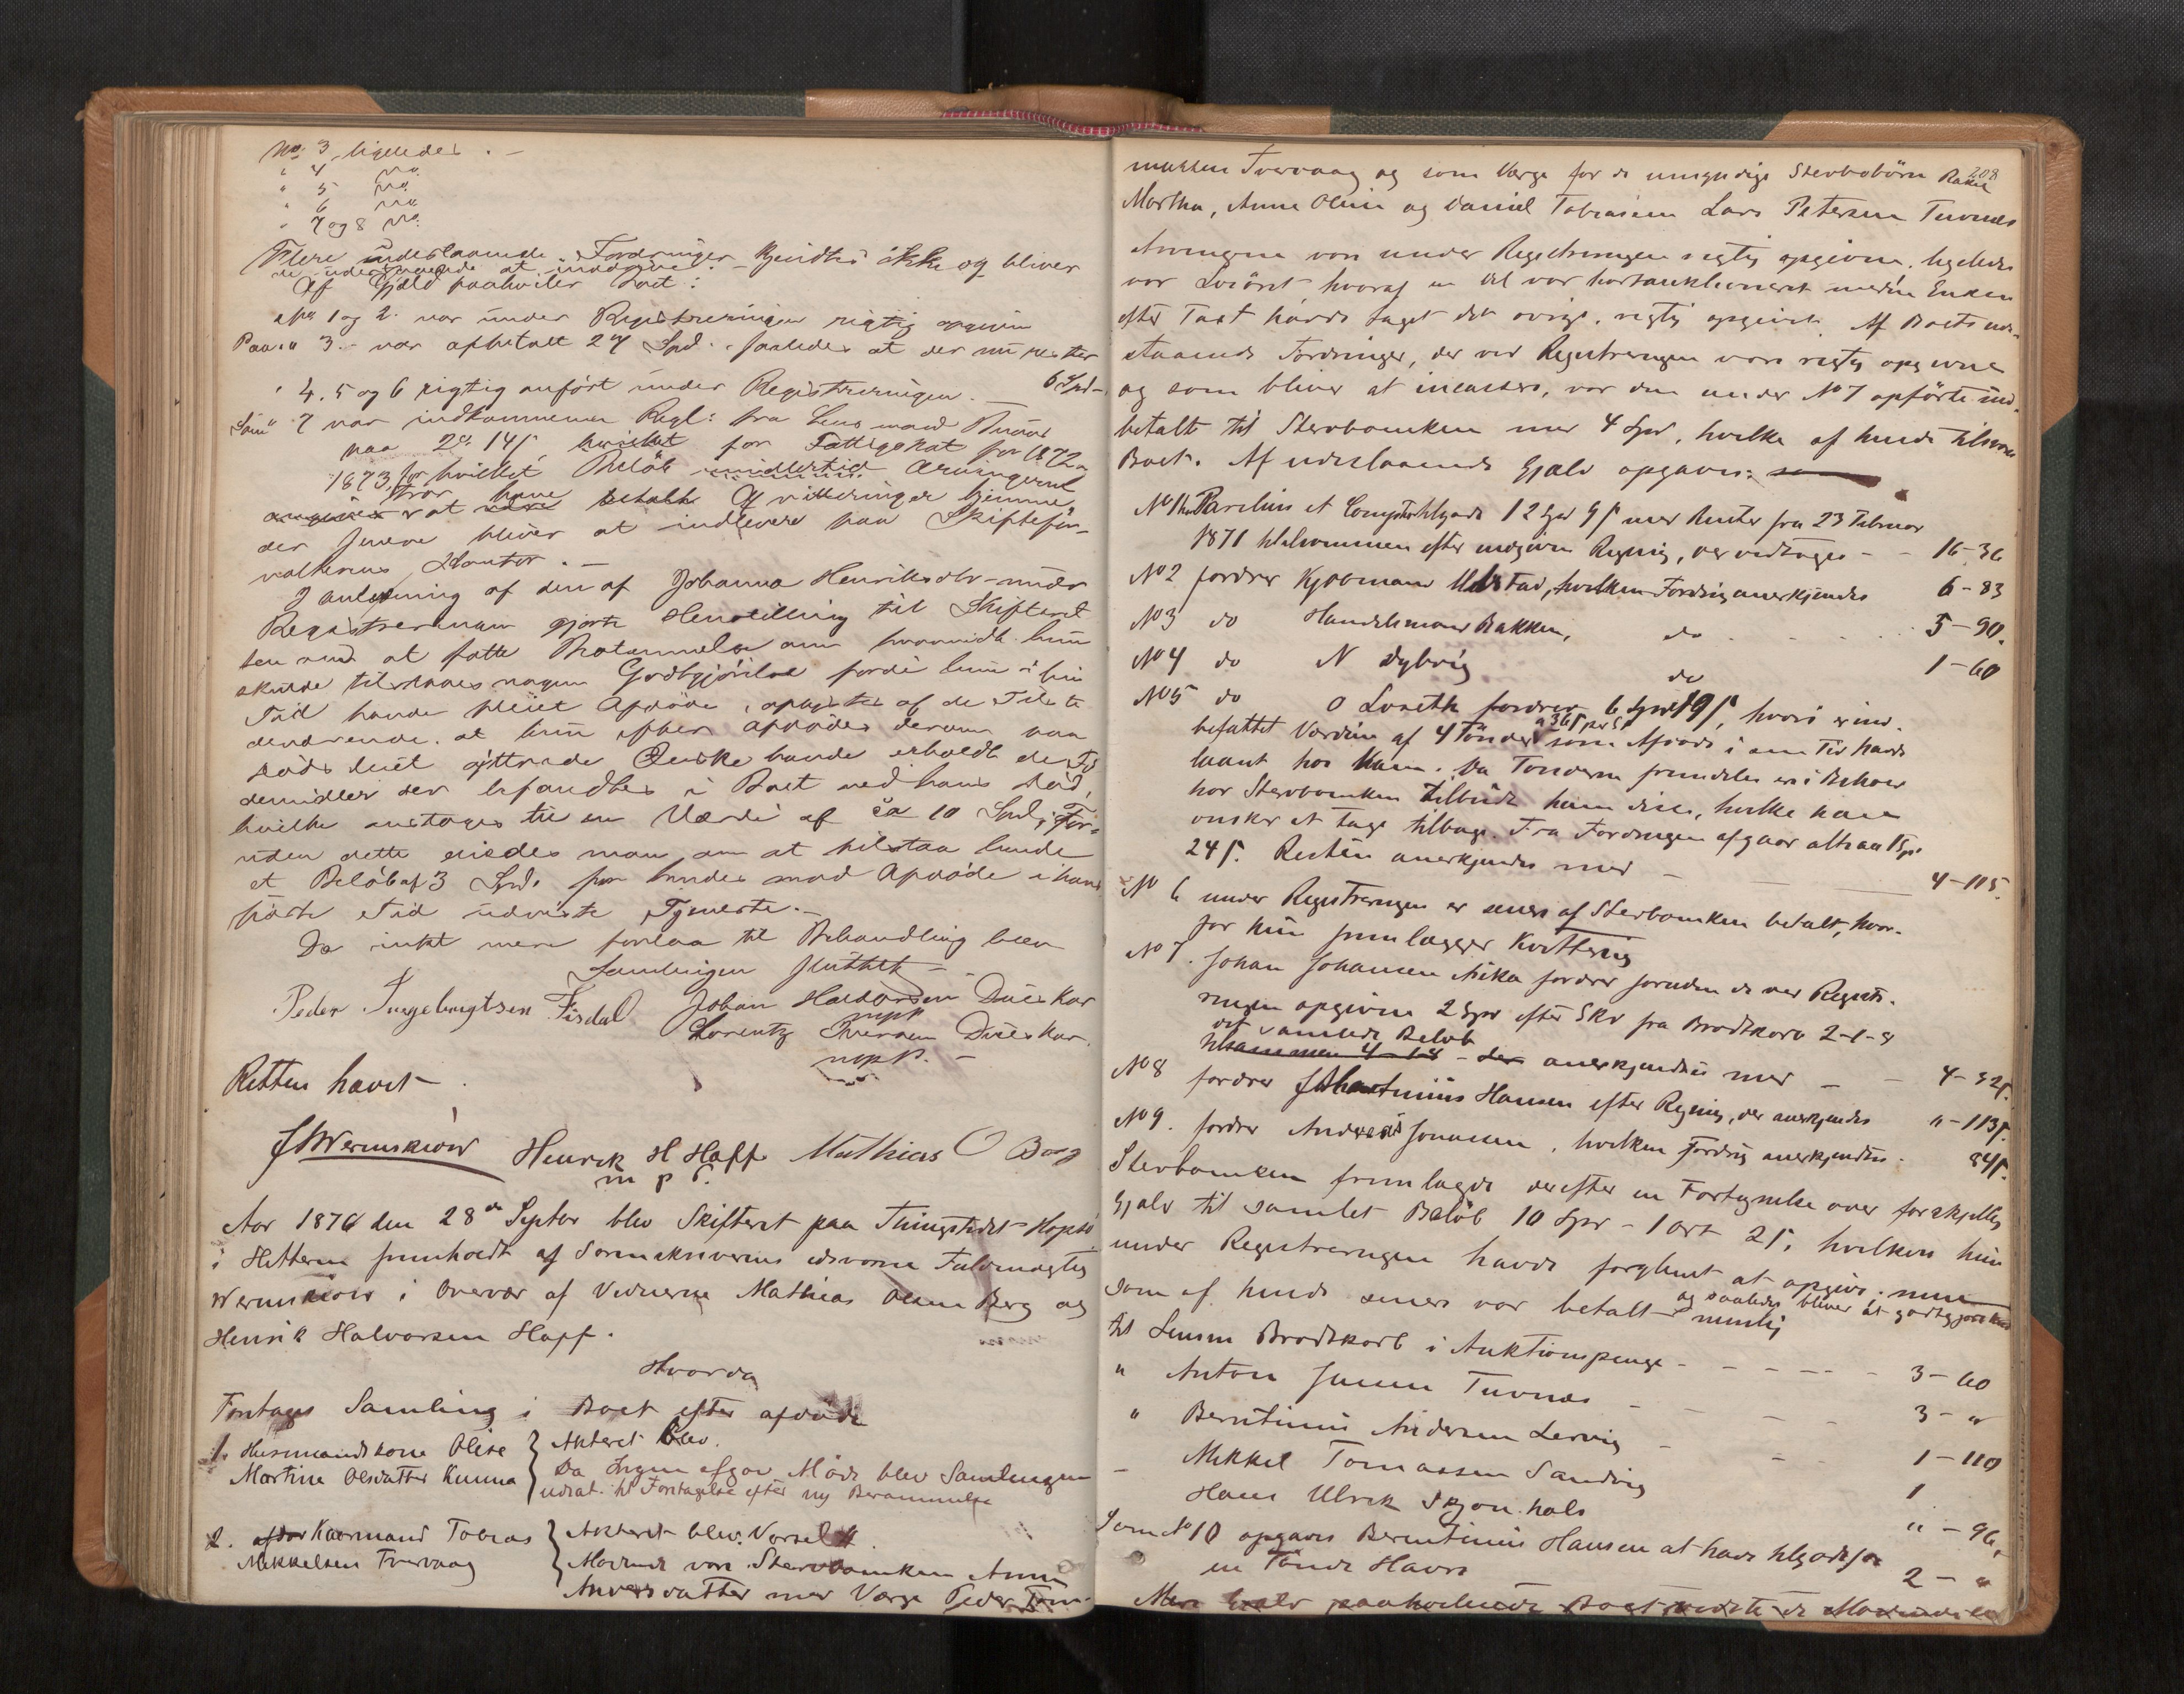 No 3 ligeledes . -
" 4 do.
" 5 do.
" 6 do.
" 7 og 8 do.
Flere udestaaende Fordringer kjendtes ikke og bliver
de udestaaende at inddrive.
Af Gjæld paahviler Boet:
No 1 og 2. var under Registreringen rigtig opgiven
Paa " 3. - var afbetalt 24 Spd. saaledes at der nu rester
6 Spd -
" 4. 5 og 6 rigtig anført under Registreringen. -
Som " 7 var indkommen Regl: fra Lensmand
paa 2 14 s for Fattigskat for 1872
1873, for hvilket Beløb imidlertid Arvingerne
tror at have betalt Qvitteringer hjemme,
der senere bliver at indlevere paa Skiftefor-
valterens Kontor. -
I anledning af den af Johanna Henriksdtr under
Registreringen gjorte Henstilling til Skifteret
ten om at fatte Bestemmelse om hvorvidt hun
skulde tilstaaes nogen Godtgjørelse fordi hun i sin
Tid havde pleiet Afdøde, oplystes af de Tilste
deværende. at hun efter Afdødes derom paa
Døds leiet yttrede Ønske havde erholdt de Fø
demidler der befandtes i Boet ved hans Død,
hvilke ansloges til en Værdi af ca 10 Spd; For-
uden dette enedes man om at tilstaa hende
et Beløb af 3 Spd. for hendes mod Afdøde i hans
sidste Tid udviste Tjeneste. -
Da intet mere forelaa til Behandling blev
Samlingen sluttet -
Peder Ingebrigtsen Fisdal Johan Haldorsen Dueskar
mpP
Lorentz Iversen Dueskar.
mpP. -
Retten hævet -
JWernskiow Henrik H Hopf Mathias O Berg
m p P.
Aar 1876 den 28de Septbr blev Skifteret paa Thingstedet Hopsø
i Hitteren fremholdt af Sorenskriverens edsvorne Fuldmægtig
Wernskiow i Overvær af Vidnerne Mathias Olsen Berg og
Henrik Halvorsen Hopf.
Hvorda
Foretages Samling i Boet efter afdøde
1. Husmandskone Olise
Martine Olsdatter Kunna
Akteret blev.
Da Ingen afgav Møde blev Samlingen
udsat til Foretagelse efter ny Berammelse
2. Kaarmand Tobias
Mikkelsen Tværvaag
Akteret blev: Varsel
Mødende vare Stervboenken Anne
Andersdatter med Værge Peder Tom-
208
massen Tværvaag og som Værge for de umyndige Stervbobørn Rakel
Martha, Anne Oline og Daniel Tobiassen Lars Petersen Tuvnæs
Arvingerne vare under Registreringen rigtig opgivne. ligeledes
var Løsøret, hvoraf en Del var bortauktioneret medens Enken
efter Taxt havde taget det øvrige, rigtig opgivet. Af Boets ude-
staaende Fordringer, der ved Registreringen vare rigtig opgivne
og som bliver at incassere, var den under No 7 opførte ind-
betalt til Stervboenken med 4 Spd, hvilke af hende tilsvares
Boet. Af udestaaende Gjæld opgaves:
No 1 Parelius et Comp 12 Spd 9 s med Renter fra 23 Februar
1871 tilsammen efter indgiven Regning, der vedtoges - - 16-36
No 2 fordrer Kjøbmand Ulstad, hvilken Fordring anerkjendes 6-83
No 3 do Handelsmand Bakken, do - - - - 5-90.
No 4 do N Dybvig do 1-60
No 5 do O Loneth fordrer 6 Spd 19 s, hvori er ind-
befattet Værdien af 4 Tønder a 36 s pr St som Afdøde i sin Tid havde
laant hos ham. Da Tønderne fremdeles er i Behold
har Stervboenken tilbudt ham disse, hvilke han
ønsker at tage tilbage. Fra Fordringen afgaar altsaa 1 Spd
24 s. Resten anerkjendes med - - 4-115.
No 6 under Registreringen er senere af Stervboenken betalt, hvor-
for hun fremlægger Kvittering
No 7. Johan Johansen fordrer foruden de ved Registre-
ringen opgivne 2 Spd efter Skr fra Brodtkorb 2-1-8
det samlede Beløb
tilsammen anerkjendtes med - - 4-32 s.
No 8 fordrer Martinius Hansen efter Regning, der anerkjendes "-113 s.
No 9. fordrer Andreas Jonassen, hvilken Fordring anerkjendtes. 84 s.
Stervboenken fremlagde derefter en Fortegnelse over forskjellig
Gjæld til samlet Beløb 10 Spd - 1 ort 2 s. hvilken hun
under Registreringen havde forglemt at opgive, men
som af hende senere var betalt og saaledes bliver at godtgjøre hende
nemlig
til Lensm Brodtkorb i Auktionspenge - - - - - 3-60
" Anton Jensen Tuvnæs - - - - 3-"
" Berntinus Andersen Lervig - - - 1-110
- Mikkel Tomassen Sandvig 1
Hans Ulrik Skjønhals "-96.
Som No 10 opgaves Berntinus Hansen at have tilgode for
en Tønde Havre 2-"
Mere Gjæld paahvilende Boet vidste de Mødende ikke